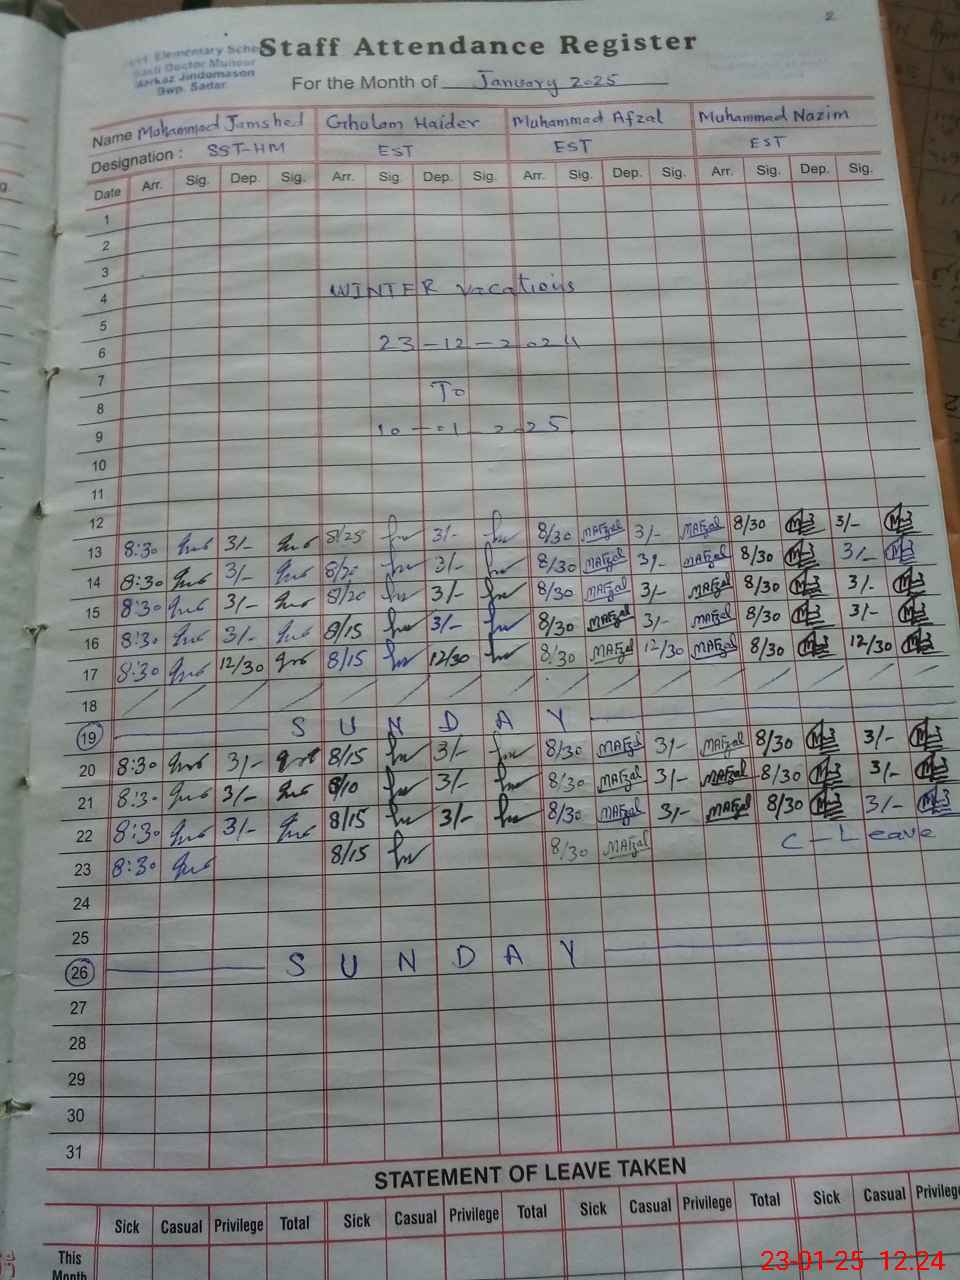 2
Elementary School
Basti Doctor Munoor
Markaz Jindomason
Bwp. Sadar
Staff Attendance Register
For the Month of January 2025
Name Mohammad Jamshed Gholam Haider Muhammad Afzal Muhammad Nazim
Designation : SST-HM EST EST EST
Date Arr. Sig. Dep. Sig. Arr. Sig. Dep. Sig. Arr. Sig. Dep. Sig. Arr. Sig. Dep. Sig.
1
2
3
4 WINTER vacations
5
6 23-12-2024
7
8 To
9 10-01-2025
10
11
12
13 8:30 3/- 8/25 3/- 8/30 MAfzal 3/- MAfzal 8/30 3/-
14 8:30 3/- 8/20 3/- 8/30 MAfzal 3/- MAfzal 8/30 3/-
15 8:30 3/- 8/20 3/- 8/30 MAfzal 3/- MAfzal 8/30 3/-
16 8:30 3/- 8/15 3/- 8/30 MAfzal 3/- MAfzal 8/30 3/-
17 8:30 12/30 8/15 12/30 8/30 MAfzal 12/30 MAfzal 8/30 12/30
18
19 SUNDAY
20 8:30 3/- 8/15 3/- 8/30 MAfzal 3/- MAfzal 8/30 3/-
21 8:30 3/- 8/10 3/- 8/30 MAfzal 3/- MAfzal 8/30 3/-
22 8:30 3/- 8/15 3/- 8/30 MAfzal 3/- MAfzal 8/30 3/-
23 8:30 8/15 8/30 MAfzal C-Leave
24
25
26 SUNDAY
27
28
29
30
31
STATEMENT OF LEAVE TAKEN
Sick Casual Privilege Total Sick Casual Privilege Total Sick Casual Privilege Total Sick Casual Privilege
This
Month
23-01-25 12.24